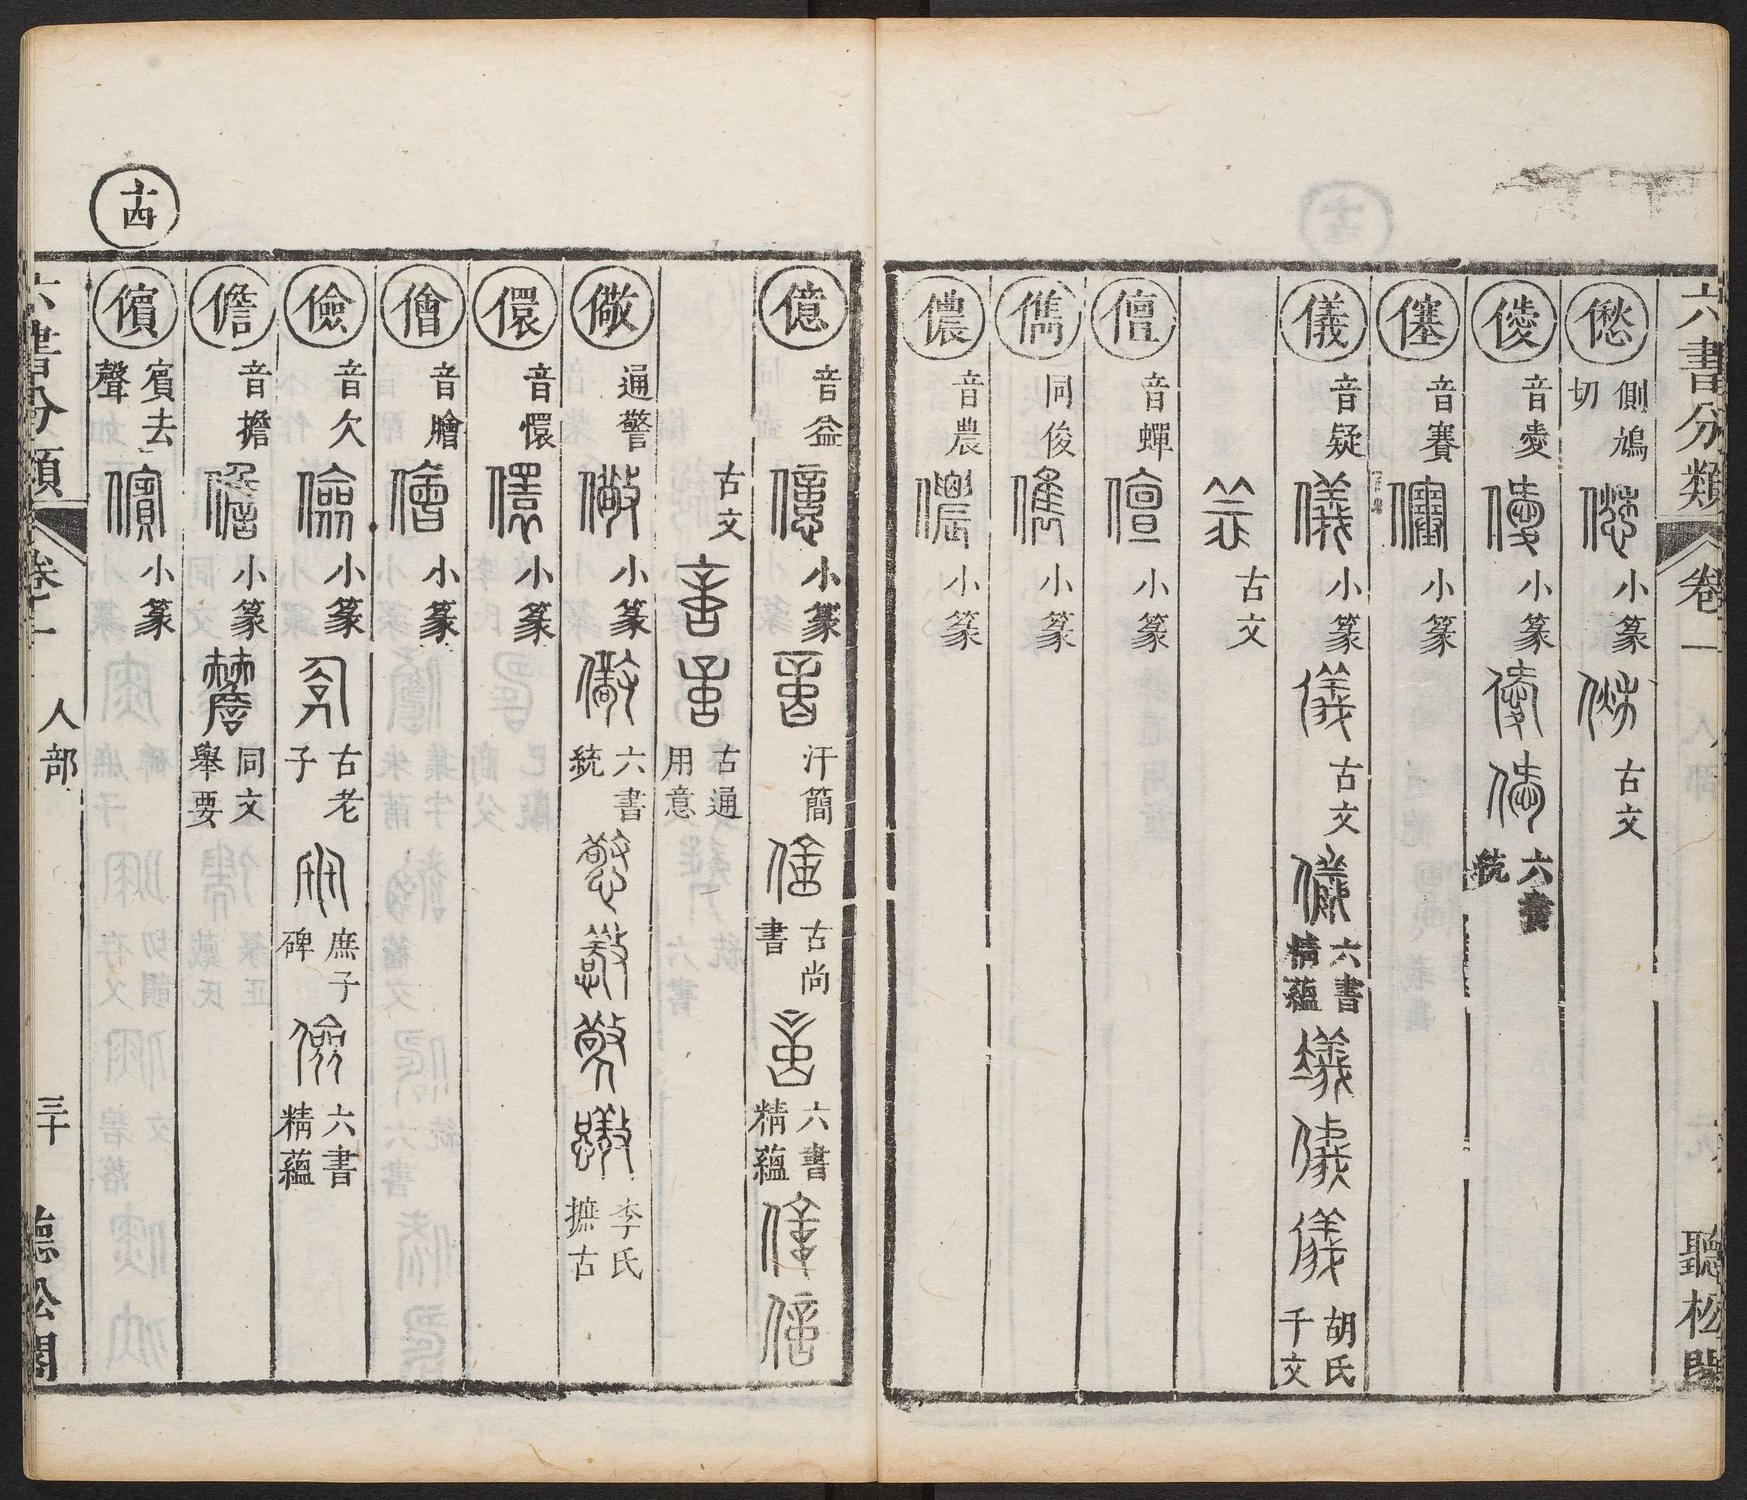 六書分類 卷一 聽松閣
僽 側鳩切 小篆 古文
㥄 音㚆 小篆 六書統
僿 音賽 小篆
儀 音疑 小篆 古文 六書精蘊 胡氏千文
古文
儃 音蟬 小篆
儁 同俊 小篆
儂 音農 小篆
億 音益 小篆 汗簡 古尚書 六書精蘊
古文 古通用意
儆 通警 小篆 六書統 李氏摭古
儇 音懁 小篆
儈 音膾 小篆
儉 音欠 小篆 古老子 庶子碑 六書精蘊
儋 音擔 小篆 同文舉要
儐 賓去聲 小篆
六書分類 卷一 人部 三十 聽松閣
十四